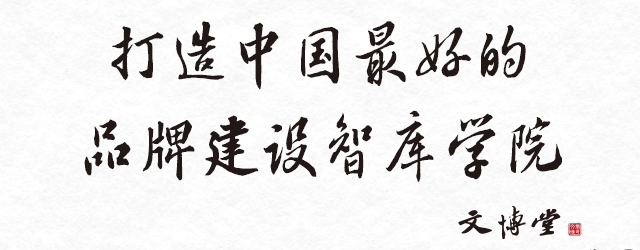 打造中国最好的
品牌建设智库学院
文博堂